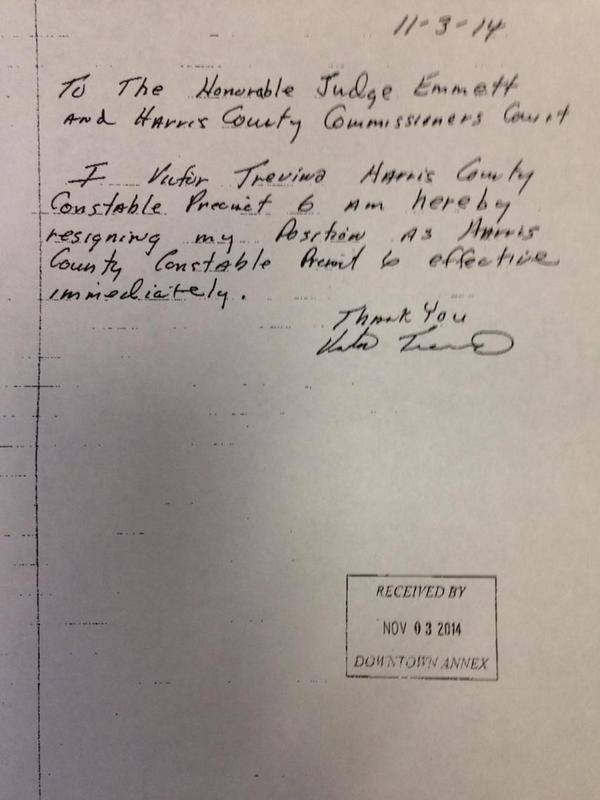 11-3-14
To The Honorable Judge Emmett
and Harris County Commissioners Court
I Victor Trevino Harris County
Constable Precinct 6 am hereby
resigning my Position as Harris
County Constable Precinct 6 effective
immediately.
Thank You
Victor Trevino
RECEIVED BY
NOV 03 2014
DOWNTOWN ANNEX